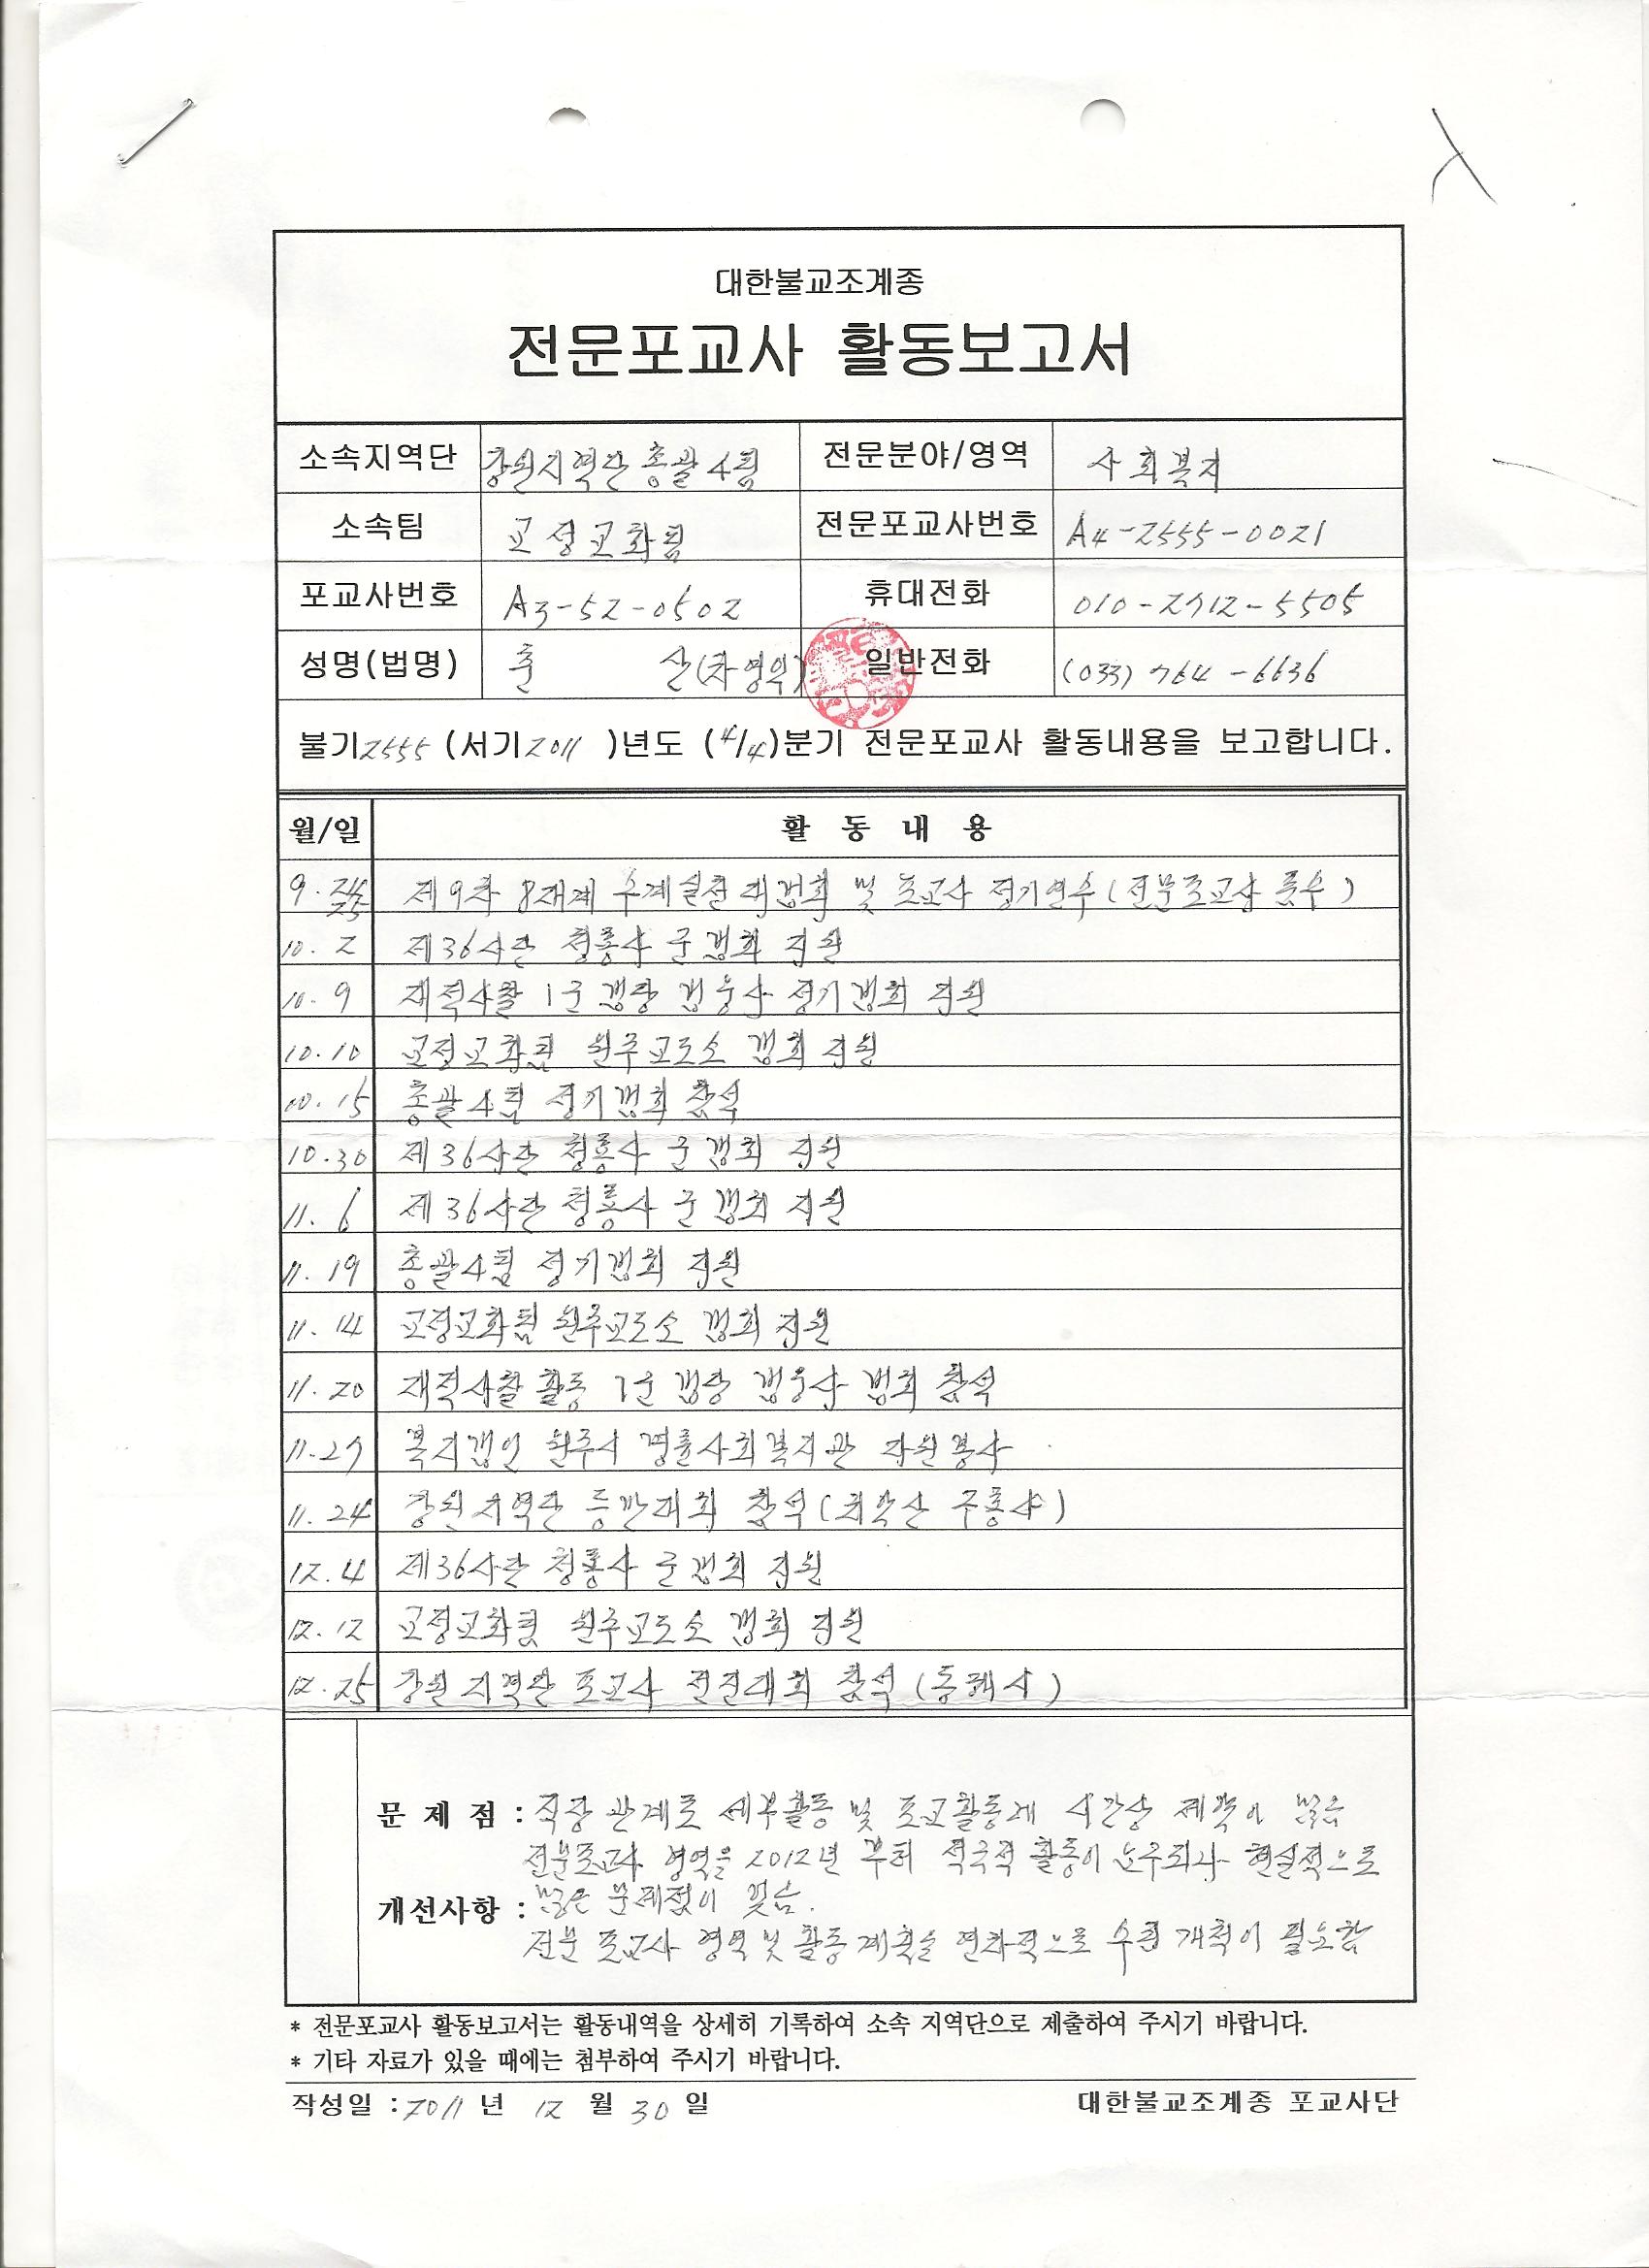 대한불교조계종
전문포교사 활동보고서
소속지역단 강원지역단 총괄4팀 전문분야/영역 사회복지
소속팀 교정교화팀 전문포교사번호 A4-2555-0021
포교사번호 A3-52-0502 휴대전화 010-2712-5505
성명(법명) 산(차영익) 일반전화 (033) 764-6636
불기2555 (서기2011 )년도 (4/4)분기 전문포교사 활동내용을 보고합니다.
월/일 활 동 내 용
9. 24 25 제9차 8재계 수계실천 대법회 및 포교사 정기연수(전문포교사 품수)
10. 2 제36사단 청룡사 군법회 지원
10. 9 재적사찰 1군 법당 법웅사 정기법회 지원
10.10 교정교화팀 원주교도소 법회 지원
10. 15 총괄4팀 정기법회 참석
10.30 제36사단 청룡사 군법회 지원
11. 6 제36사단 청룡사 군법회 지원
11. 19 총괄4팀 정기법회 지원
11. 14 교정교화팀 원주교도소 법회 지원
11. 20 재적사찰 활동 1군 법당 법웅사 법회 참석
11.27 복지법인 원주시 명륜사회복지관 자원봉사
11. 24 강원지역단 등반대회 참석( )
12. 4 제36사단 청룡사 군법회 지원
12. 12 교정교화팀 원주교도소 법회 지원
12. 25 강원지역단 포교사 전진대회 참석( )
문 제 점 : 직장 관계로 세부활동 및 포교활동에 시간상 제약이 많음
전문포교사 영역을 2012년 부터 적극적 활동이 현실적으로
개선사항 : 많은 문제점이 있음.
전문 포교사 영역 및 활동계획을 연차적으로 수립 개척이 필요함
* 전문포교사 활동보고서는 활동내역을 상세히 기록하여 소속 지역단으로 제출하여 주시기 바랍니다.
* 기타 자료가 있을 때에는 첨부하여 주시기 바랍니다.
작성일 : 2011 년 12 월 30 일 대한불교조계종 포교사단